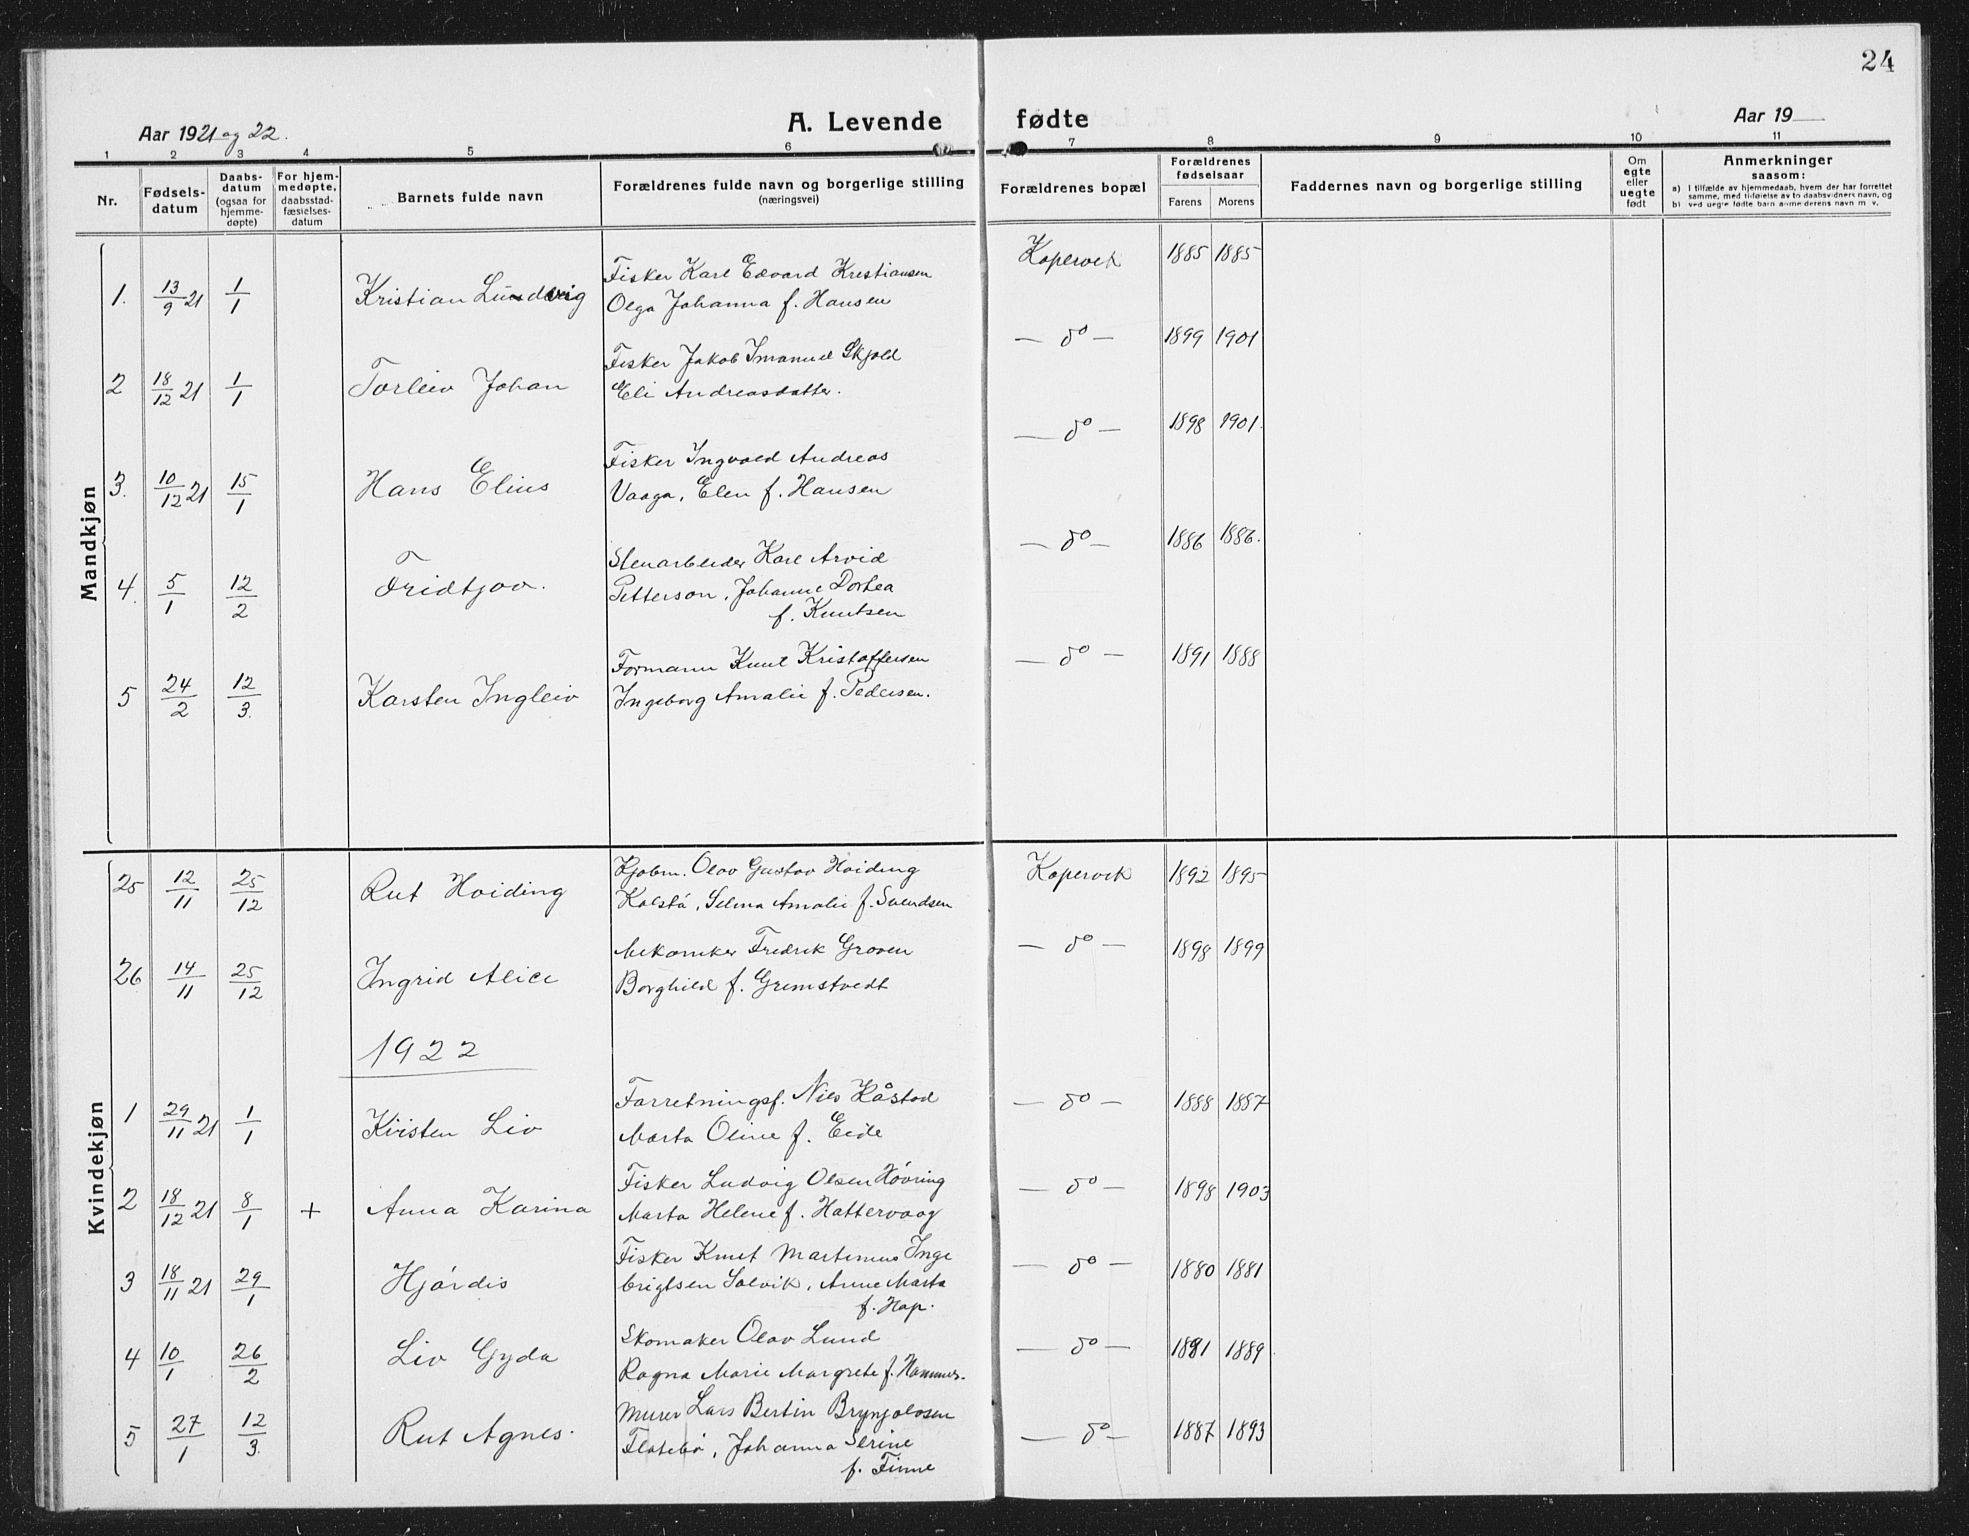 24
Aar 1921 og 22.
A. Levende fødte
Aar 19
1 2 3 4 5 6 7 8 9 10 11
Nr.
Fødsels-
datum
Daabs-
datum
(ogsaa for
hjemme-
døpte)
For hjem-
medøpte,
daabsstad-
fæstelses-
datum
Barnets fulde navn
Forældrenes fulde navn og borgerlige stilling
(næringsvei)
Forældrenes bopæl
Forældrenes
fødselsaar
Farens Morens
Faddernes navn og borgerlige stilling
Om
egte
eller
uegte
født
Anmerkninger
saasom:
a) i tilfælde av hjemmedaab, hvem der har forrettet
samme, med tilføielse av to daabsvidners navn, og
b) ved uegte fødte barn anmelderens navn m. v.
Mandkjøn
Fisker Karl Edvard Kristiansen Kopervik 1885 1885
1. 13/9 21 1/1 Kristian Ludvig Olga Johanna f. Hansen
Fisker Jakob Imanuel Skjold — do — 1899 1901
2 18/12 21 1/1 Torleiv Johan Eli Andreasdatter.
Fisker Ingvald Andreas — do — 1898 1901.
3. 10/12 21 15/1 Hans Elius Vaaga, Elen f. Hansen
Stenarbeider Karl Arvid — do — 1886 1886.
4. 5/1 12/2 Fridtjov. Petterson, Johanne Dortea
f. Knutsen
Formann Knut Kristoffersen — do — 1891 1888
5 24/2 12/3. Karsten Ingleiv Ingeborg Amalie f. Pedersen.
Kvindekjøn
Kjøbm. Olav Gustav Hoiding Kopervik 1892 1895
25 12/11 25/12 Rut Hoiding Kalstø, Selma Amalie f. Svendsen
Mekaniker Fredrik Groven — do — 1898 1899
26 14/11 25/12 Ingrid Alice Borghild f. Gremstvedt
1922
Forretningsf. Nils Håstad — do — 1888 1887
1 29/11 21 1/1 Kirsten Liv Marta Oline f. Eide
Fisker Ludvig Olsen Høvring — do — 1898 1903
2 18/12 21 8/1 + Anna Karina Marta Helene f. Hattervaag
Fisker Knut Martinus Inge — do — 1880 1881
3 18/11 21 29/1 Hjørdis brigtsen Solvik, Anne Marta
f. Hop.
Skomaker Olav Lund — do — 1881 1889
4 10/1 26/2 Liv Gyda Ragna Marie Margrete f. Hammer.
Murer Lars Bertin Brynjolvsen — do — 1887 1893
5 27/1 12/3. Rut Agnes. Flatebø, Johanna Serine
f. Finne